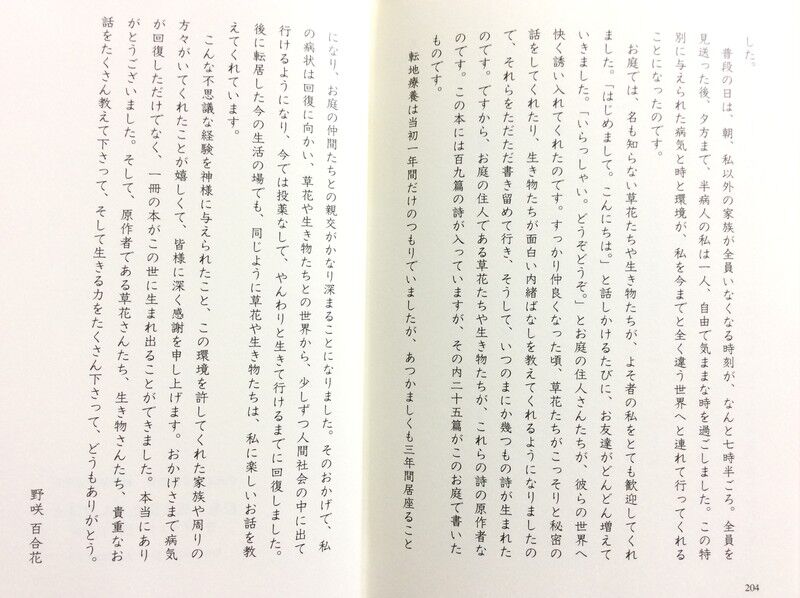 した。
普段の日は、朝、私以外の家族が全員いなくなる時刻が、なんと七時半ごろ。全員を
見送った後、夕方まで、半病人の私は一人、自由で気ままな時を過ごしました。この特
別に与えられた病気と時と環境が、私を今までと全く違う世界へと連れて行ってくれる
ことになったのです。
お庭では、名も知らない草花たちや生き物たちが、よそ者の私をとても歓迎してくれ
ました。「はじめまして。こんにちは。」と話しかけるたびに、お友達がどんどん増えて
いきました。「いらっしゃい。どうぞどうぞ。」とお庭の住人さんたちが、彼らの世界へ
快く誘い入れてくれたのです。すっかり仲良くなった頃、草花たちがこっそりと秘密の
話をしてくれたり、生き物たちが面白い内緒ばなしを教えてくれるようになりましたの
で、それらをただただ書き留めて行き、そうして、いつのまにか幾つもの詩が生まれた
のです。ですから、お庭の住人である草花たちや生き物たちが、これらの詩の原作者な
のです。この本には百九篇の詩が入っていますが、その内二十五篇がこのお庭で書いた
ものです。
転地療養は当初一年間だけのつもりでいましたが、あつかましくも三年間居座ること
204
になり、お庭の仲間たちとの親交がかなり深まることになりました。そのおかげで、私
の病状は回復に向かい、草花や生き物たちとの世界から、少しずつ人間社会の中に出て
行けるようになり、今では投薬なしで、やんわりと生きて行けるまでに回復しました。
後に転居した今の生活の場でも、同じように草花や生き物たちは、私に楽しいお話を教
えてくれています。
こんな不思議な経験を神様に与えられたこと、この環境を許してくれた家族や周りの
方々がいてくれたことが嬉しくて、皆様に深く感謝を申し上げます。おかげさまで病気
が回復しただけでなく、一冊の本がこの世に生まれ出ることができました。本当にあり
がとうございました。そして、原作者である草花さんたち、生き物さんたち、貴重なお
話をたくさん教えて下さって、そして生きる力をたくさん下さって、どうもありがとう。
野咲 百合花